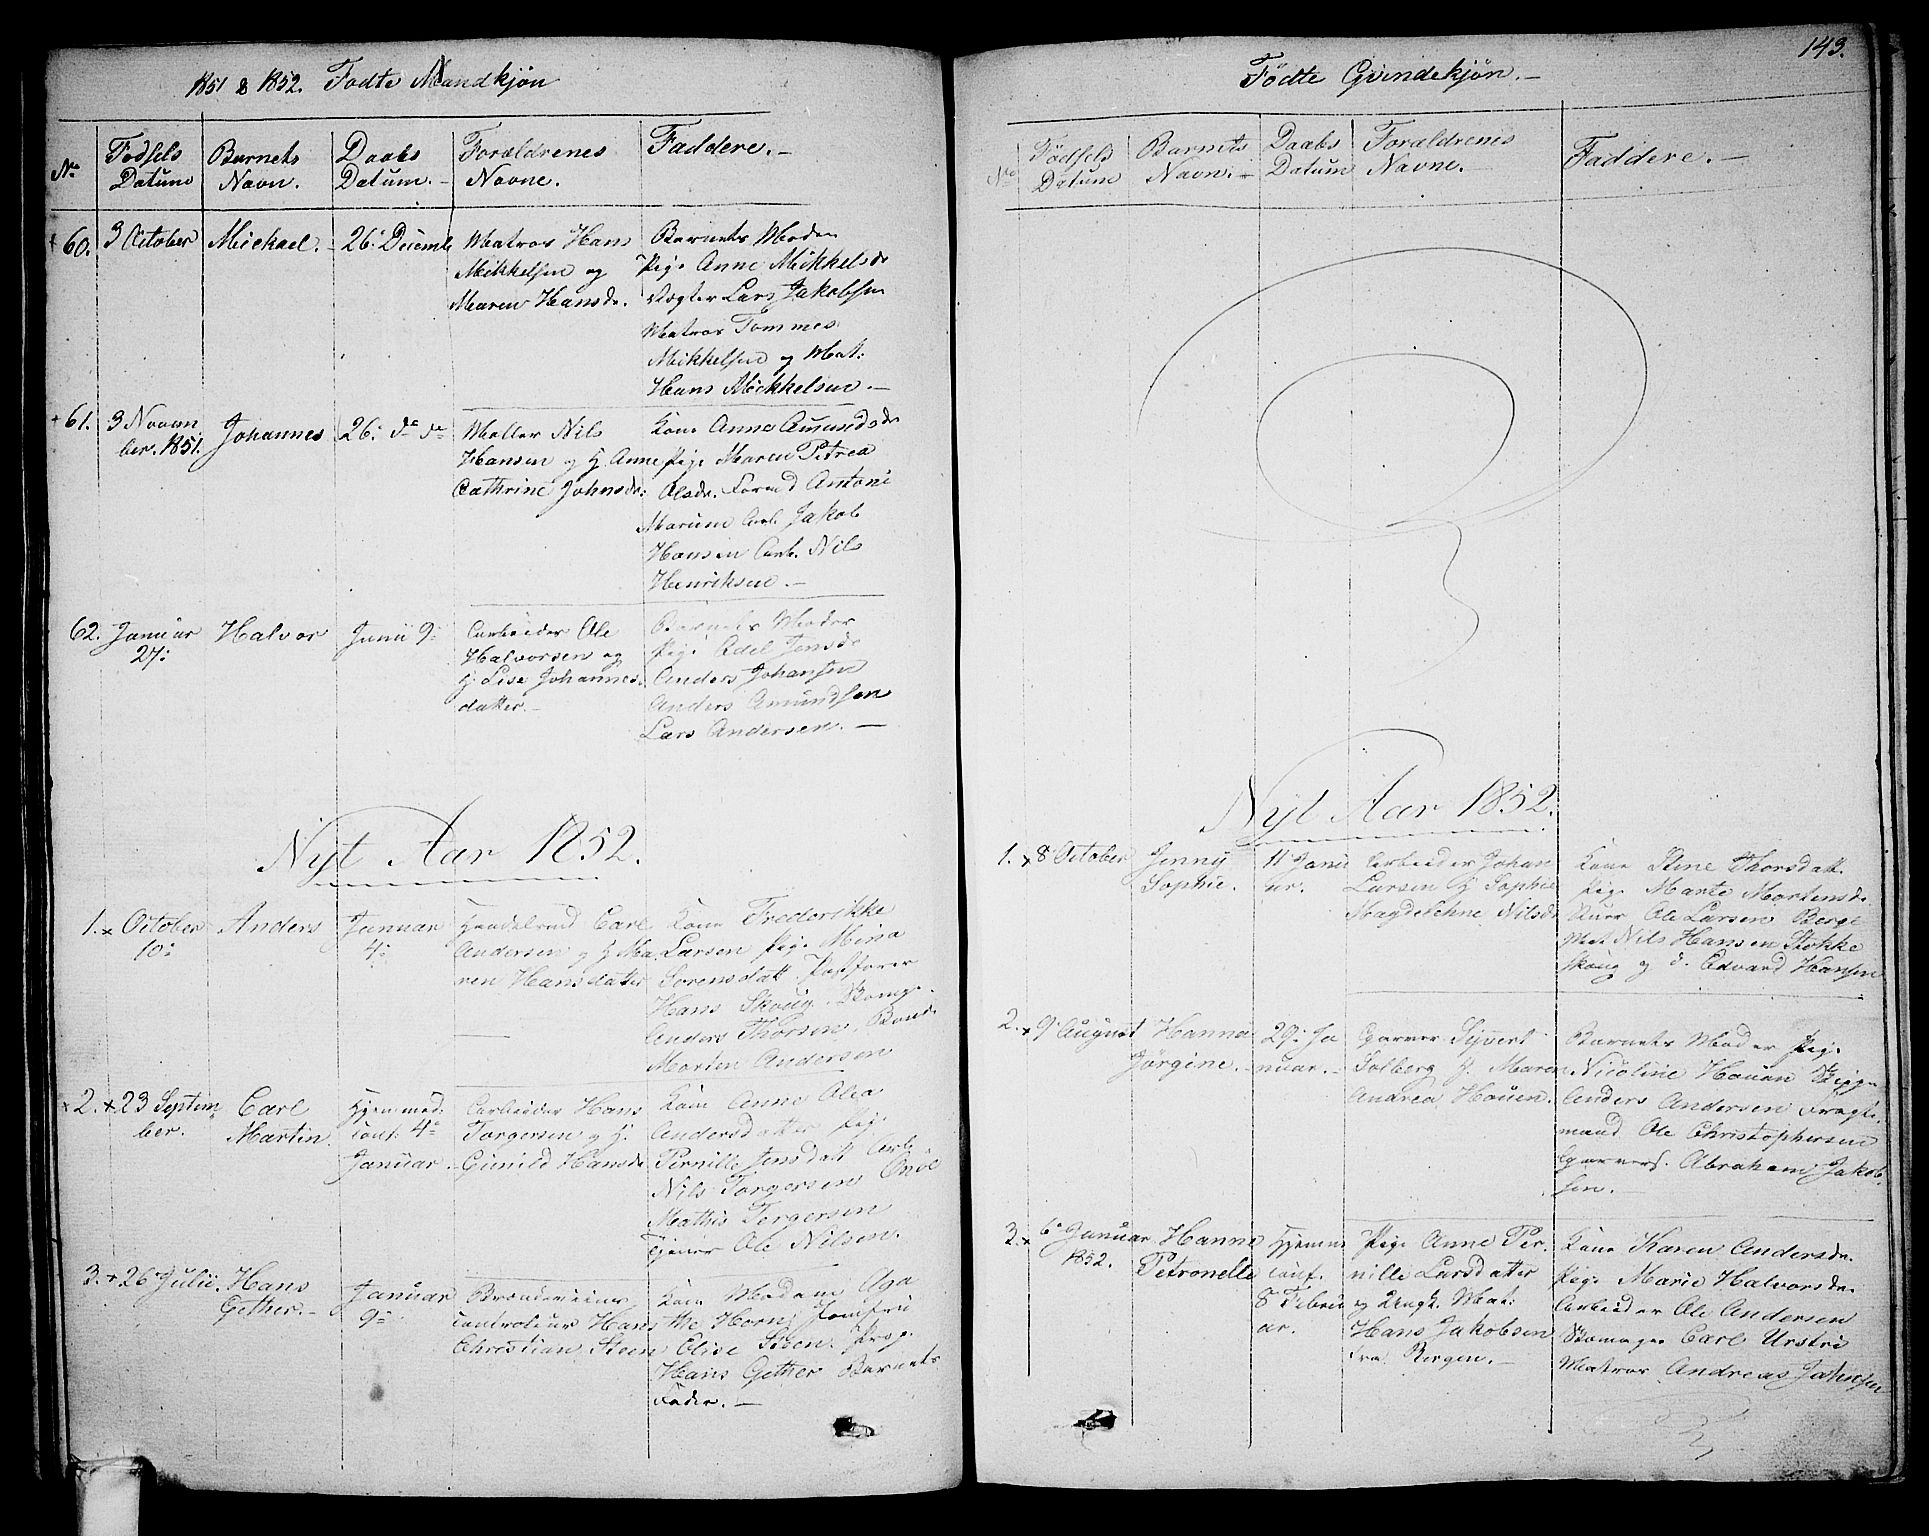 1851 & 1852. Fødte Mandkjøn
No
Fødsels Datum
Barnets Navn.
Daabs Datum.
Forældrenes Navne.
Faddere.
60.
3 October
Michael.
26. Decemb
Matros Hans
Mikkelsen og
Maren Hansd.
Barnets Moder
Pige Anne Mikkelsd.
Vægter Lars Jakobsen
Matros Tommes
Mikkelsen og Mat:
Hans Mikkelsen.
61.
3 Novem
ber. 1851.
Johannes
26. do do
Møller Nils
Hansen og H. Anne
Cathrine Johnsd:
Kone Anne Amundsd.
Pige Maren Petrea
Olsdr. Antoni
Jakob
Hansen Arb. Nils
Henriksen.
62.
Januar
27:
Halvor
Junii 9
Arbeider Ole
Halvorsen og
H. Lise Johannes
datter.
Barnets Moder
Pige Adel Jensd.
Anders Johansen
Anders Amundsen
Lars Andersen.
Nyt Aar 1852.
1. x
October
10:
Anders
Januar
4:
Handelsmd Carl
Andersen og H Ma
ren Hansdatter
Kone Frederikke
Larsen Pige Mina
Sorensdatt. Postfører
Hans Skoug.
Anders Thorsen. Bonde
Morten Andersen
x 2. x
23 Septem
ber.
Carl
Martin
Hjemmed:
conf: 4
Januar
Arbeider Hans
Torgersen og H.
Gunild Hansd.
Kone Anne Olea
Andersdatter Pige
Pernille Jensdatt Arb
Nils Torgersen
Mathis Torgersen
Tjener Ole Nilsen.
3. x
26 Julii
Hans
Gether.
Januar
9
Brændeviins
controleur Hans
Christian Steen
Kone Madam Aga
the Horn, Jomfru
Elise Steen. Prog.
Hans Gether Barnets
Fader.
143.
Fødte Qvindekjøn.
No
Fødsels Datum
Barnets Navn.
Daabs Datum
Forældrenes Navne.
Faddere.
Nyt Aar 1852.
1. x
8 October
Jenny
Sophie.
11 Janu
ar.
Arbeider Johan
Larsen H Sophie
Magdelehne Nilsd.
Kone Stine Thorsdatt.
Pige Marte Mortensd.
Ole Larsen Berge
Mat Nils Hansen Stokke
skoug og d. Edvard Hansen
2. x
9 August
Hanna
Jörgine.
29. Ja
nuar.
Garver Syvert
Solberg H. Maren
Andrea Houen.
Barnets Moder Pige
Nicoline Houen
Anders Andersen Fragte
mand Ole Christophersen
Garvers. Abraham Jakob
sen.
3. x
6 Januar
1852.
Hanne
Petronelle
Hjemme
conf.
8 Febru
ar.
Pige Anne Per
nille Larsdatter
og Ungk. Mat:
Hans Jakobsen
fra Bergen.
Kone Karen Andersdr.
Pige Marie Halvorsdr.
Arbeider Ole Andersen
Carl Urstri
Matros Andreas Johnsen